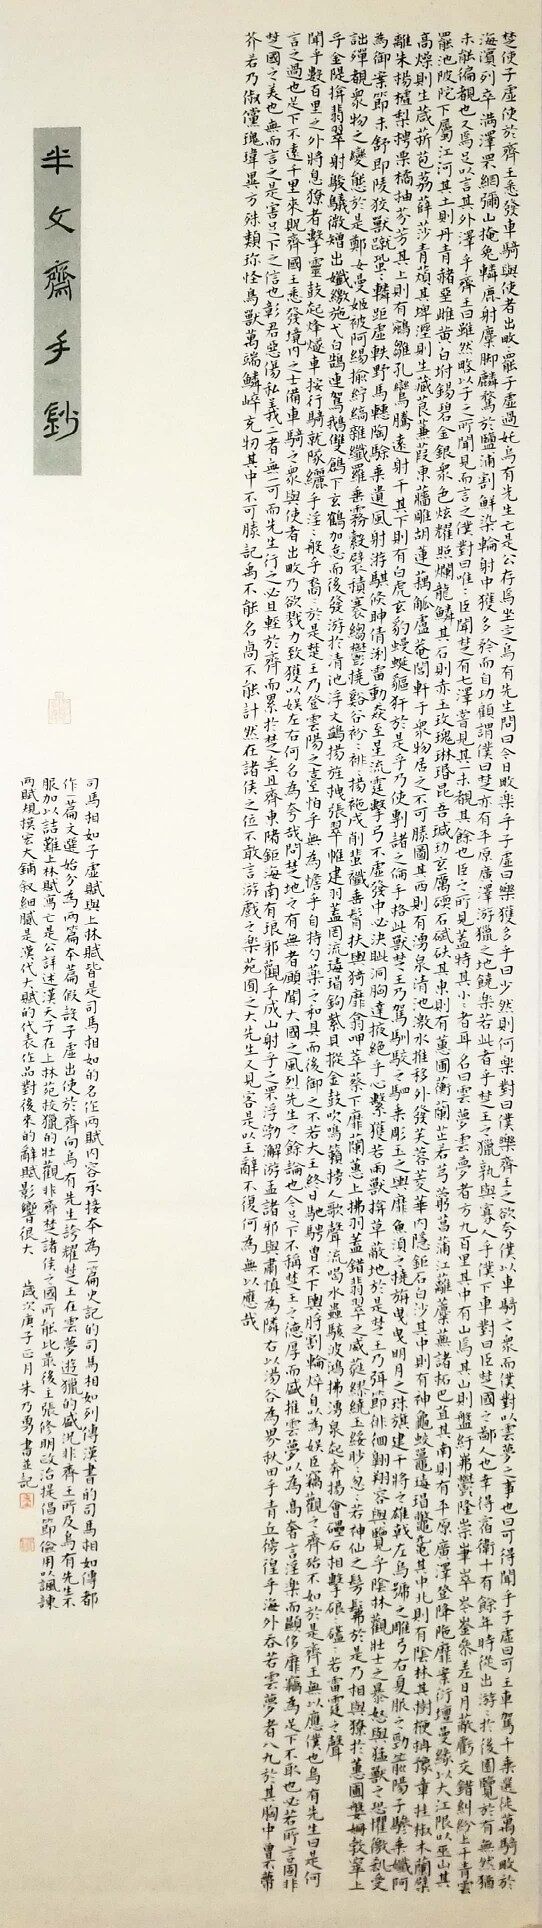 楚使子虛使於齊王悉發車騎與使者出畋畋罷子虛過奼烏有先生亡是公存焉坐定烏有先生問曰今日畋樂乎子虛曰樂獲多乎曰少然則何樂對曰僕樂齊王之欲夸僕以車騎之眾而僕對以雲夢之事也曰可得聞乎子虛曰可王車駕千乘選徒萬騎畋於
海濱列卒滿澤罘網彌山掩兔轔鹿射麋脚麟騖於鹽浦割鮮染輪射中獲多矜而自功顧謂僕曰楚亦有平原廣澤游獵之地饒樂若此者乎楚王之獵孰與寡人乎僕下車對曰臣楚國之鄙人也幸得宿衛十有餘年時從出游游於後園覽於有無然猶
未能徧覩也又焉足以言其外澤乎齊王曰雖然略以子之所聞見而言之僕對曰唯唯臣聞楚有七澤嘗見其一未覩其餘也臣之所見蓋特其小小者耳名曰雲夢雲夢者方九百里其中有山焉其山則盤紆岪鬱隆崇崒崒岑崟參差日月蔽虧交錯糾紛上干青雲
罷池陂陀下屬江河其土則丹青赭堊雌黃白坿錫碧金銀眾色炫耀照爛龍鱗其石則赤玉玫瑰琳瑉昆吾瑊玏玄厲碝石碔砆其東則有蕙圃衡蘭芷若芎藭菖蒲江蘺蘪蕪諸柘巴苴其南則有平原廣澤登降陁靡案衍壇曼緣以大江限以巫山其
高燥則生葴菥苞荔薛莎青薠其埤溼則生藏莨蒹葭東蘠雕胡蓮藕觚盧菴閭軒于眾物居之不可勝圖其西則有湧泉清池激水推移外發芙蓉菱華內隱鉅石白沙其中則有神龜蛟鼉瑇瑁鼈黿其中北則有陰林其樹楩柟豫章桂椒木蘭檗
離朱楊樝梨梬栗橘柚芬芳其上則有鵷鶵孔鸞騰遠射干其下則有白虎玄豹蟃蜒貙犴於是乎乃使剸諸之倫手格此獸楚王乃駕馴駮之駟乘彫玉之輿靡魚須之橈旃曳曳明月之珠旗建干將之雄戟左烏號之雕弓右夏服之勁箭陽子驂乘孅阿
為御案節未舒即陵狡獸蹴蛩蛩轔距虛軼野馬轊陶駼乘遺風射游騏倏眒倩浰雷動猋至星流霆擊弓不虛發中必決眦洞胸達掖絕乎心繫獲若雨獸揜草蔽地於是楚王乃弭節徘徊翱翔容與覽乎陰林觀壯士之暴怒與猛獸之恐懼徼郄受
詘殫覩眾物之變態於是鄭女曼姬被阿緆揄紵縞雜纖羅垂霧縠襞積褰縐鬱橈谿谷衯衯裶裶揚袘戌削蜚襳垂髾扶輿猗靡翕呷萃蔡下靡蘭蕙上拂羽蓋錯翡翠之葳蕤繆繞玉綏眇眇忽忽若神仙之髣髴於是乃相與獠於蕙圃媻姍勃窣上
乎金隄揜翡翠射鵔鸃微矰出孅繳施弋白鵠連駕鵝雙鶬下玄鶴加怠而後發游於清池浮文鷁揚旌拽張翠帷建羽蓋罔瑇瑁鉤紫貝摐金鼓吹鳴籟榜人歌聲流喝水蟲駭波鴻沸湧泉起奔揚會礧石相擊硠硠礚礚若雷霆之聲
聞乎數百里之外將息獠者擊靈鼓起烽燧車按行騎就隊纚乎淫淫般乎裔裔於是楚王乃登雲陽之臺怕乎無為憺乎自持勺藥之和具而後御之不若大王終日馳騁曾不下輿脟割輪焠自以為娛臣竊觀之齊殆不如於是齊王無以應僕也烏有先生曰是何
言之過也足下不遠千里來貺齊國王悉發境內之士備車騎之眾與使者出畋乃欲戮力致獲以娛左右何名為夸哉問楚地之有無者願聞大國之風烈先生之餘論也今足下不稱楚王之德厚而盛推雲夢以為高奢言淫樂而顯侈靡竊為足下不取也必若所言固非
楚國之美也無而言之是害足下之信也彰君惡傷私義二者無一可而先生行之必且輕於齊而累於楚矣且齊東陼鉅海南有琅邪觀乎成山射乎之罘浮渤澥游孟諸邪與肅慎為隣右以湯谷為界秋田乎青丘徬徨乎海外吞若雲夢者八九於其胸中曾不蔕
芥若乃俶儻瑰瑋異方殊類珍怪鳥獸萬端鱗崒充牣其中不可勝記禹不能名卨不能計然在諸侯之位不敢言游戲之樂苑囿之大先生又見客是以王辭不復何為無以應哉
司馬相如子虛賦與上林賦皆是司馬相如的名作兩賦內容承接本為一篇史記的司馬相如列傳漢書的司馬相如傳都
作一篇文選始分為兩篇本篇假設子虛出使於齊向烏有先生誇耀楚王在雲夢遊獵的盛況非齊王所及烏有先生不
服加以詰難上林賦寫亡是公詳述漢天子在上林苑校獵的壯觀非齊楚諸侯之國所能比最後主張修明政治提倡節儉用以諷諫
兩賦規模宏大鋪敘細膩是漢代大賦的代表作品對後來的辭賦影響很大 歲次庚子正月朱乃勇書並記
半文齋手鈔